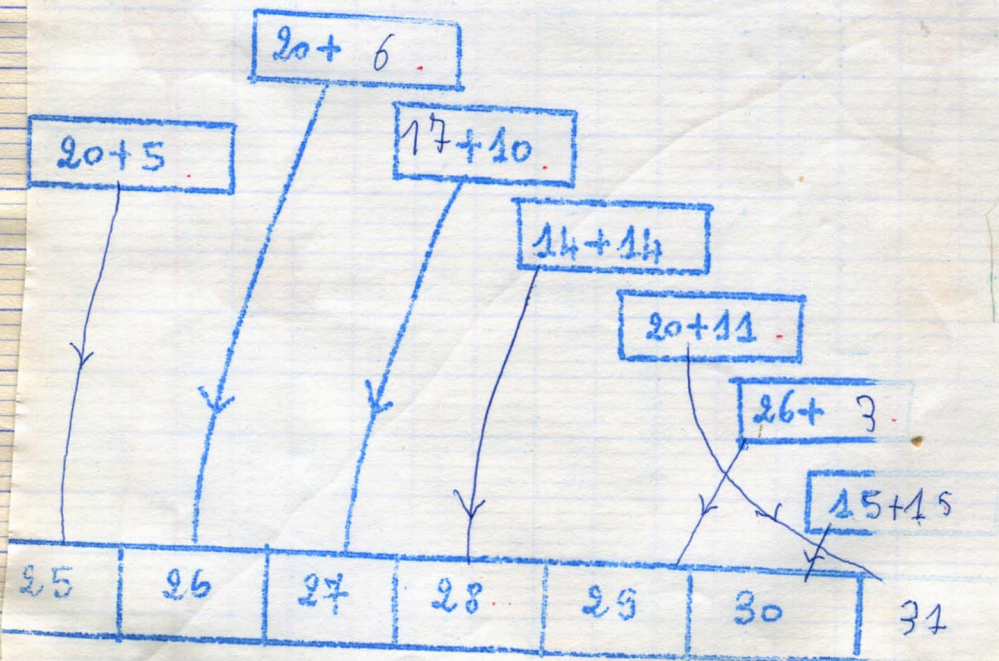 20+ 6
20+5
17+10
14+14
20+11
26+ 3
15+15
25 26 27 28 29 30 31